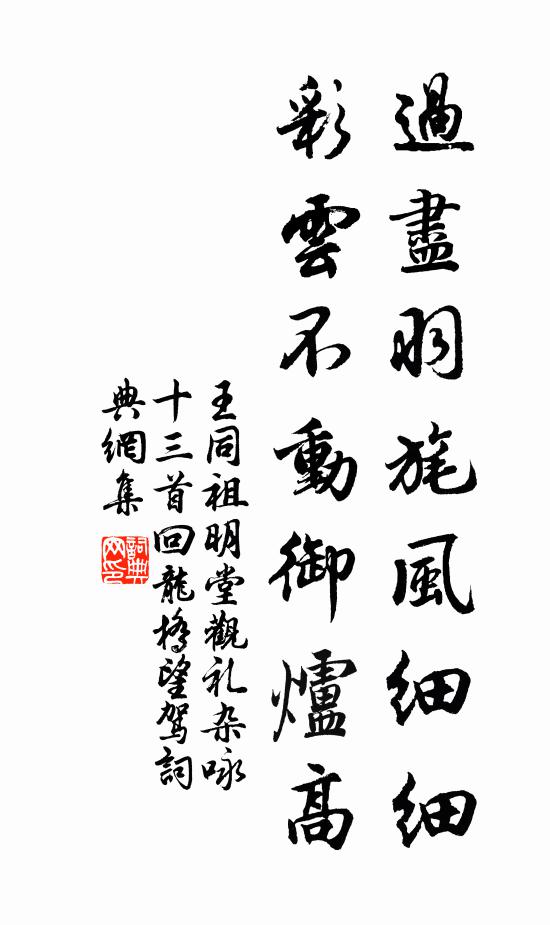 過盡羽旄風細細
彩雲不動御爐高
王同祖明堂觀礼杂咏
十三首回龍橋望駕詞
典網集
詞典网印